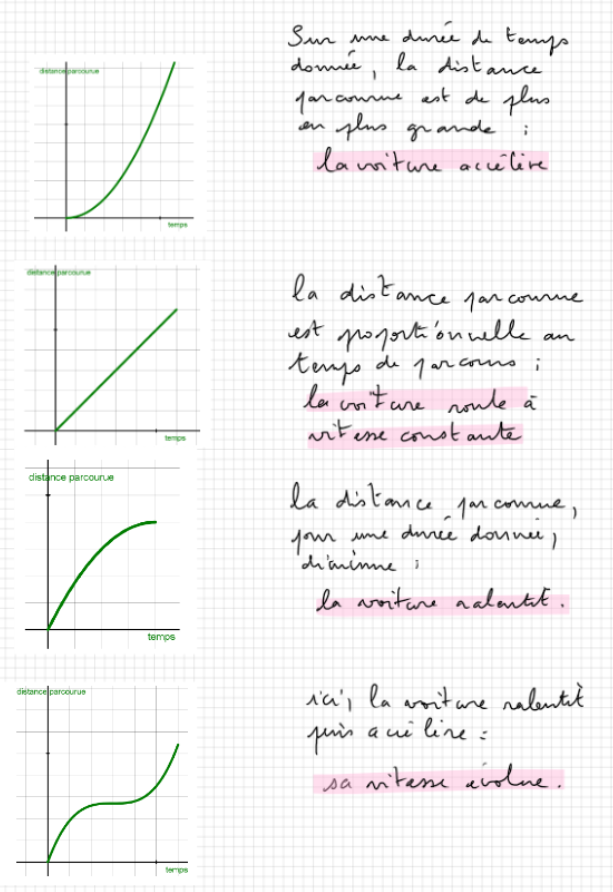 Sur une durée de temps
donnée, la distance
parcourue est de plus
en plus grande :
la voiture accélère
distance parcourue
temps
la distance parcourue
est proportionnelle au
temps de parcours :
la voiture roule à
vitesse constante
distance parcourue
temps
la distance parcourue,
pour une durée donnée,
diminue :
la voiture ralentit.
distance parcourue
temps
ici, la voiture ralentit
puis accélère :
sa vitesse évolue.
distance parcourue
temps